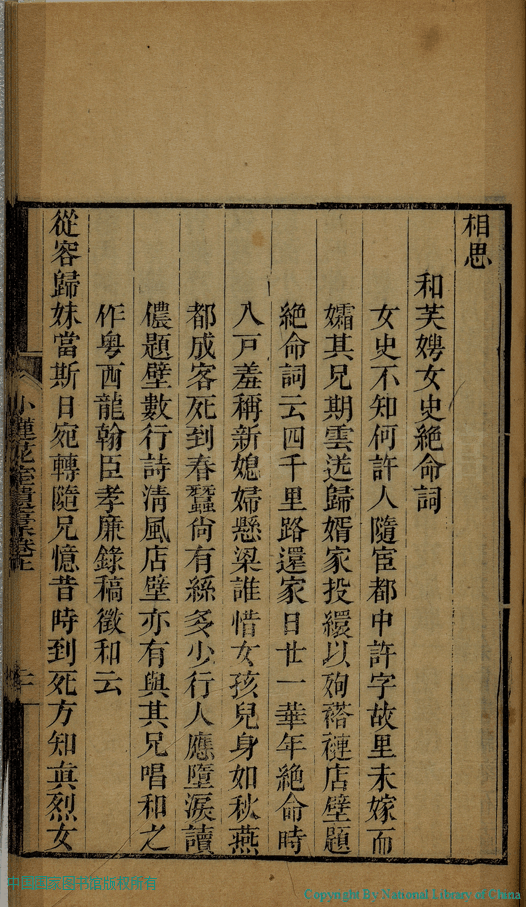 相思
和芙娉女史絶命詞
女史不知何許人隨宦都中許字故里未嫁而
孀其兄期雲送歸婿家投繯以殉褡褳店壁題
絶命詞云四千里路還家日廿一華年絶命時
入戸羞稱新媳婦懸梁誰惜女孩兒身如秋燕
都成客死到春蠶尙有絲多少行人應墮淚讀
儂題壁數行詩淸風店壁亦有與其兄唱和之
作粤西龍翰臣孝廉錄稿徵和云
從容歸妹當斯日宛轉隨兄憶昔時到死方知眞烈女
中国国家图书馆版权所有
Copyright By National Library of China